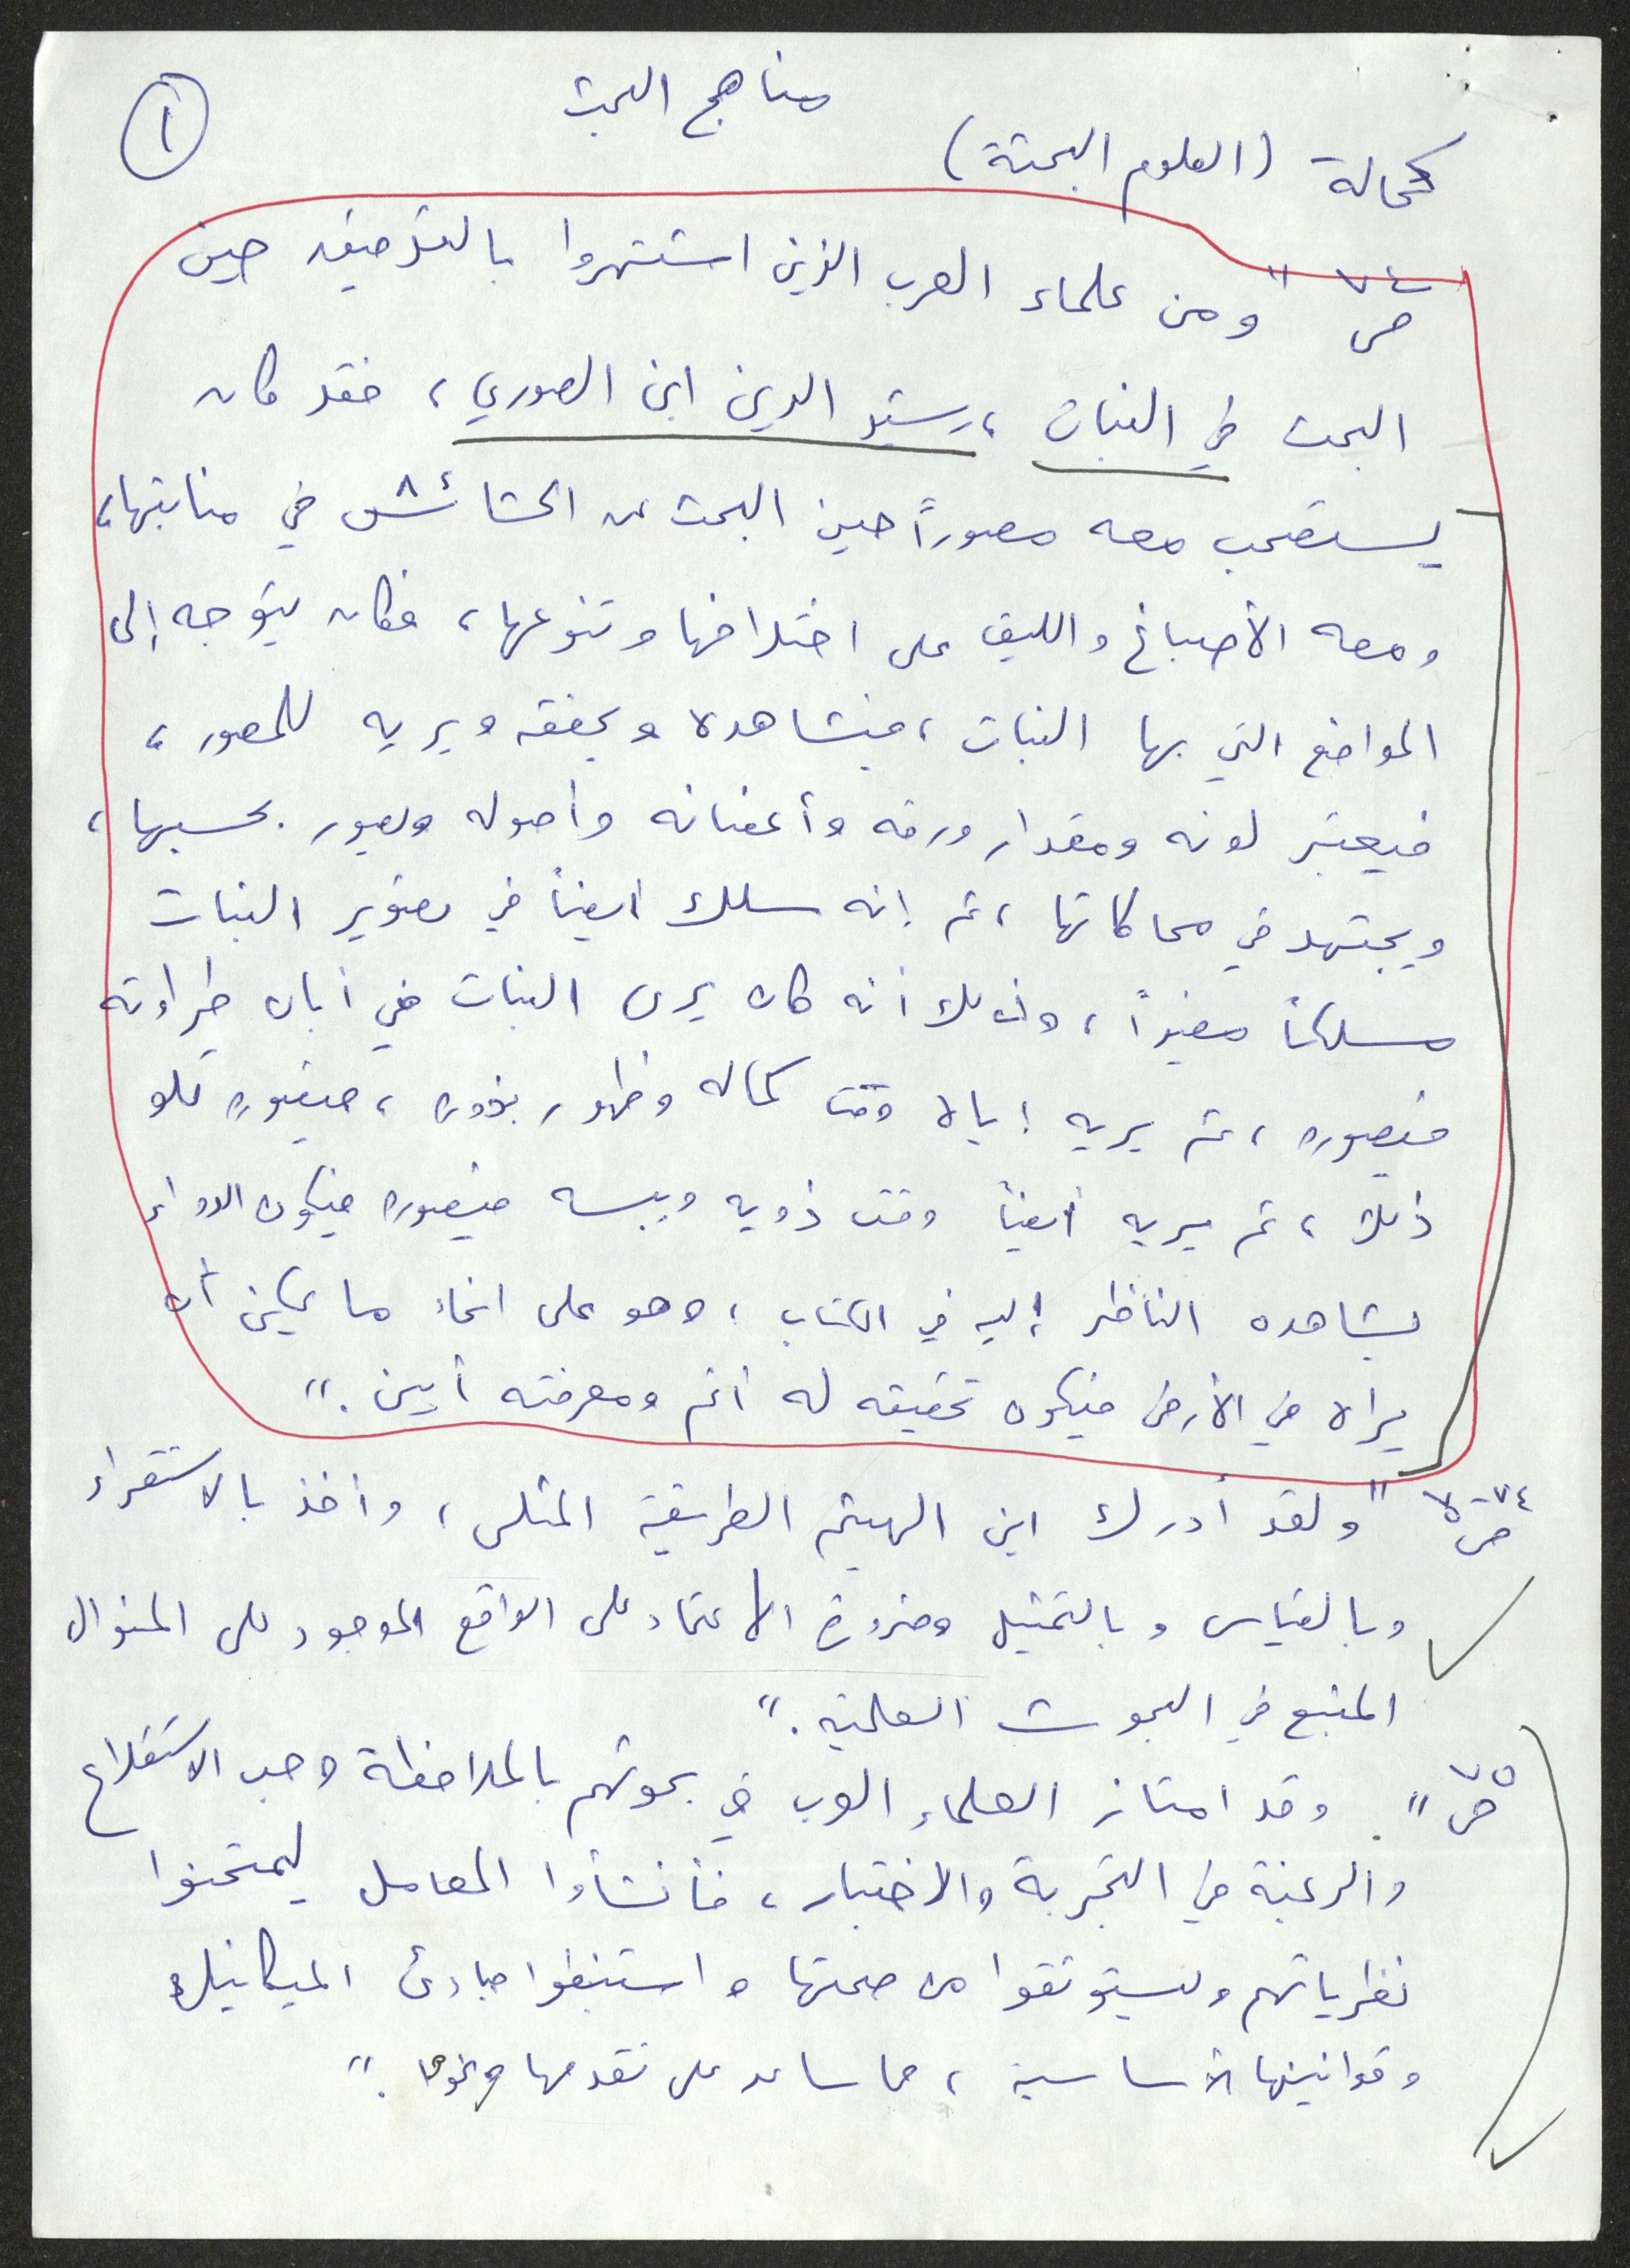 مناهج البحث
١
كحالة (العلوم البحتة)
ص ٧٤ "ومن علماء العرب الذين اشتهروا بالتدقيق حين
البحث في النبات، رشيد الدين ابن الصوري، فقد كان
يستصحب معه مصوراً حين البحث عن الحشائش في منابتها،
ومعه الأصباغ والليق على اختلافها وتنوعها، فكان يتوجه إلى
المواضع التي بها النبات، فيشاهده ويحققه ويريه للمصور،
فيعتبر لونه ومقدار ورقه وأغصانه وأصوله ويصور بحسبها،
ويجتهد في محاكاتها، ثم إنه سلك أيضاً في تصوير النبات
مسلكاً مفيداً، وذلك أنه كان يرى النبات في أبان طراوته
فيصوره، ثم يريه إياه وقت كماله وظهور بذوره، فيصوره تلو
ذلك، ثم يريه أيضاً وقت ذويه ويبسه فيصوره فيكون الدواء
يشاهده الناظر إليه في الكتاب، وهو على انحاء ما يمكن أن
يراه في الأرض فيكون تحقيقه له أتم ومعرفته أبين."
ص ٧٤-٧٥ "ولقد أدرك ابن الهيثم الطريقة المثلى، وأخذ بالاستقراء
وبالقياس وبالتمثيل وضرورة الاعتماد على الواقع الموجود على المنوال
المتبع في البحوث العلمية."
ص ٧٥ "وقد امتاز العلماء العرب في بحوثهم بالملاحظة وحب الاستطلاع
والرغبة في التجربة والاختبار، فأنشأوا المعامل ليمتحنوا
نظرياتهم وليستوثقوا من صحتها واستنبطوا مبادئ الميكانيك
وقوانينها الأساسية، مما ساعد على تقدمها ونموها."